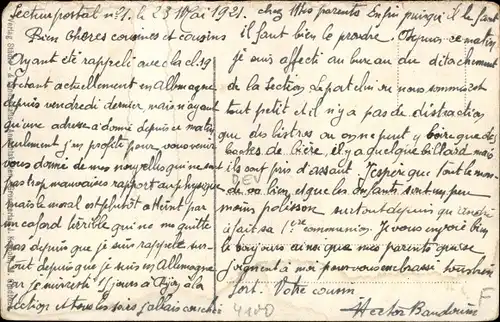 Secteur postal n° 1. le 23 Mai 1921.
Bien chères cousines et cousins
Ayant été rappelé avec la cl. 19
et étant actuellement en Allemagne
depuis vendredi dernier, mais n'ayant
qu'une adresse a donné depuis ce matin
seulement j'en profite pour vous
vous donné de mes nouvelles qui ne sont
pas trop mauvaises rapport au physique
mais le moral est plutôt atteint par
un cafard terrible qui ne me quitte
pas depuis que je suis rappelé sur-
tout depuis que je suis en Allemagne
car je suis resté 11 jours a
section et tous les soirs j'allais coucher
chez Mes parents. Enfin puisqu'il le faut
il faut bien le prendre. Depuis ce matin
je suis affecté au bureau du détachement
de la section. le patelin où nous sommes est
tout petit et il n'y a pas de distraction
que des bistros où on ne peut y boire que de
bière, il y a quelques billard mais
ils sont pris d'assaut. J'espère que tout le mon-
de va bien, et que les enfants sont un peu
moins polisson surtout depuis qu'André
a fait sa 1ère communion. Je vous envoie bien
le bonjours ainsi que mes parents qui se
joignent à moi pour vous embrassé tous bien
fort. Votre cousin
Hector Baudouin
DEV
4100
F